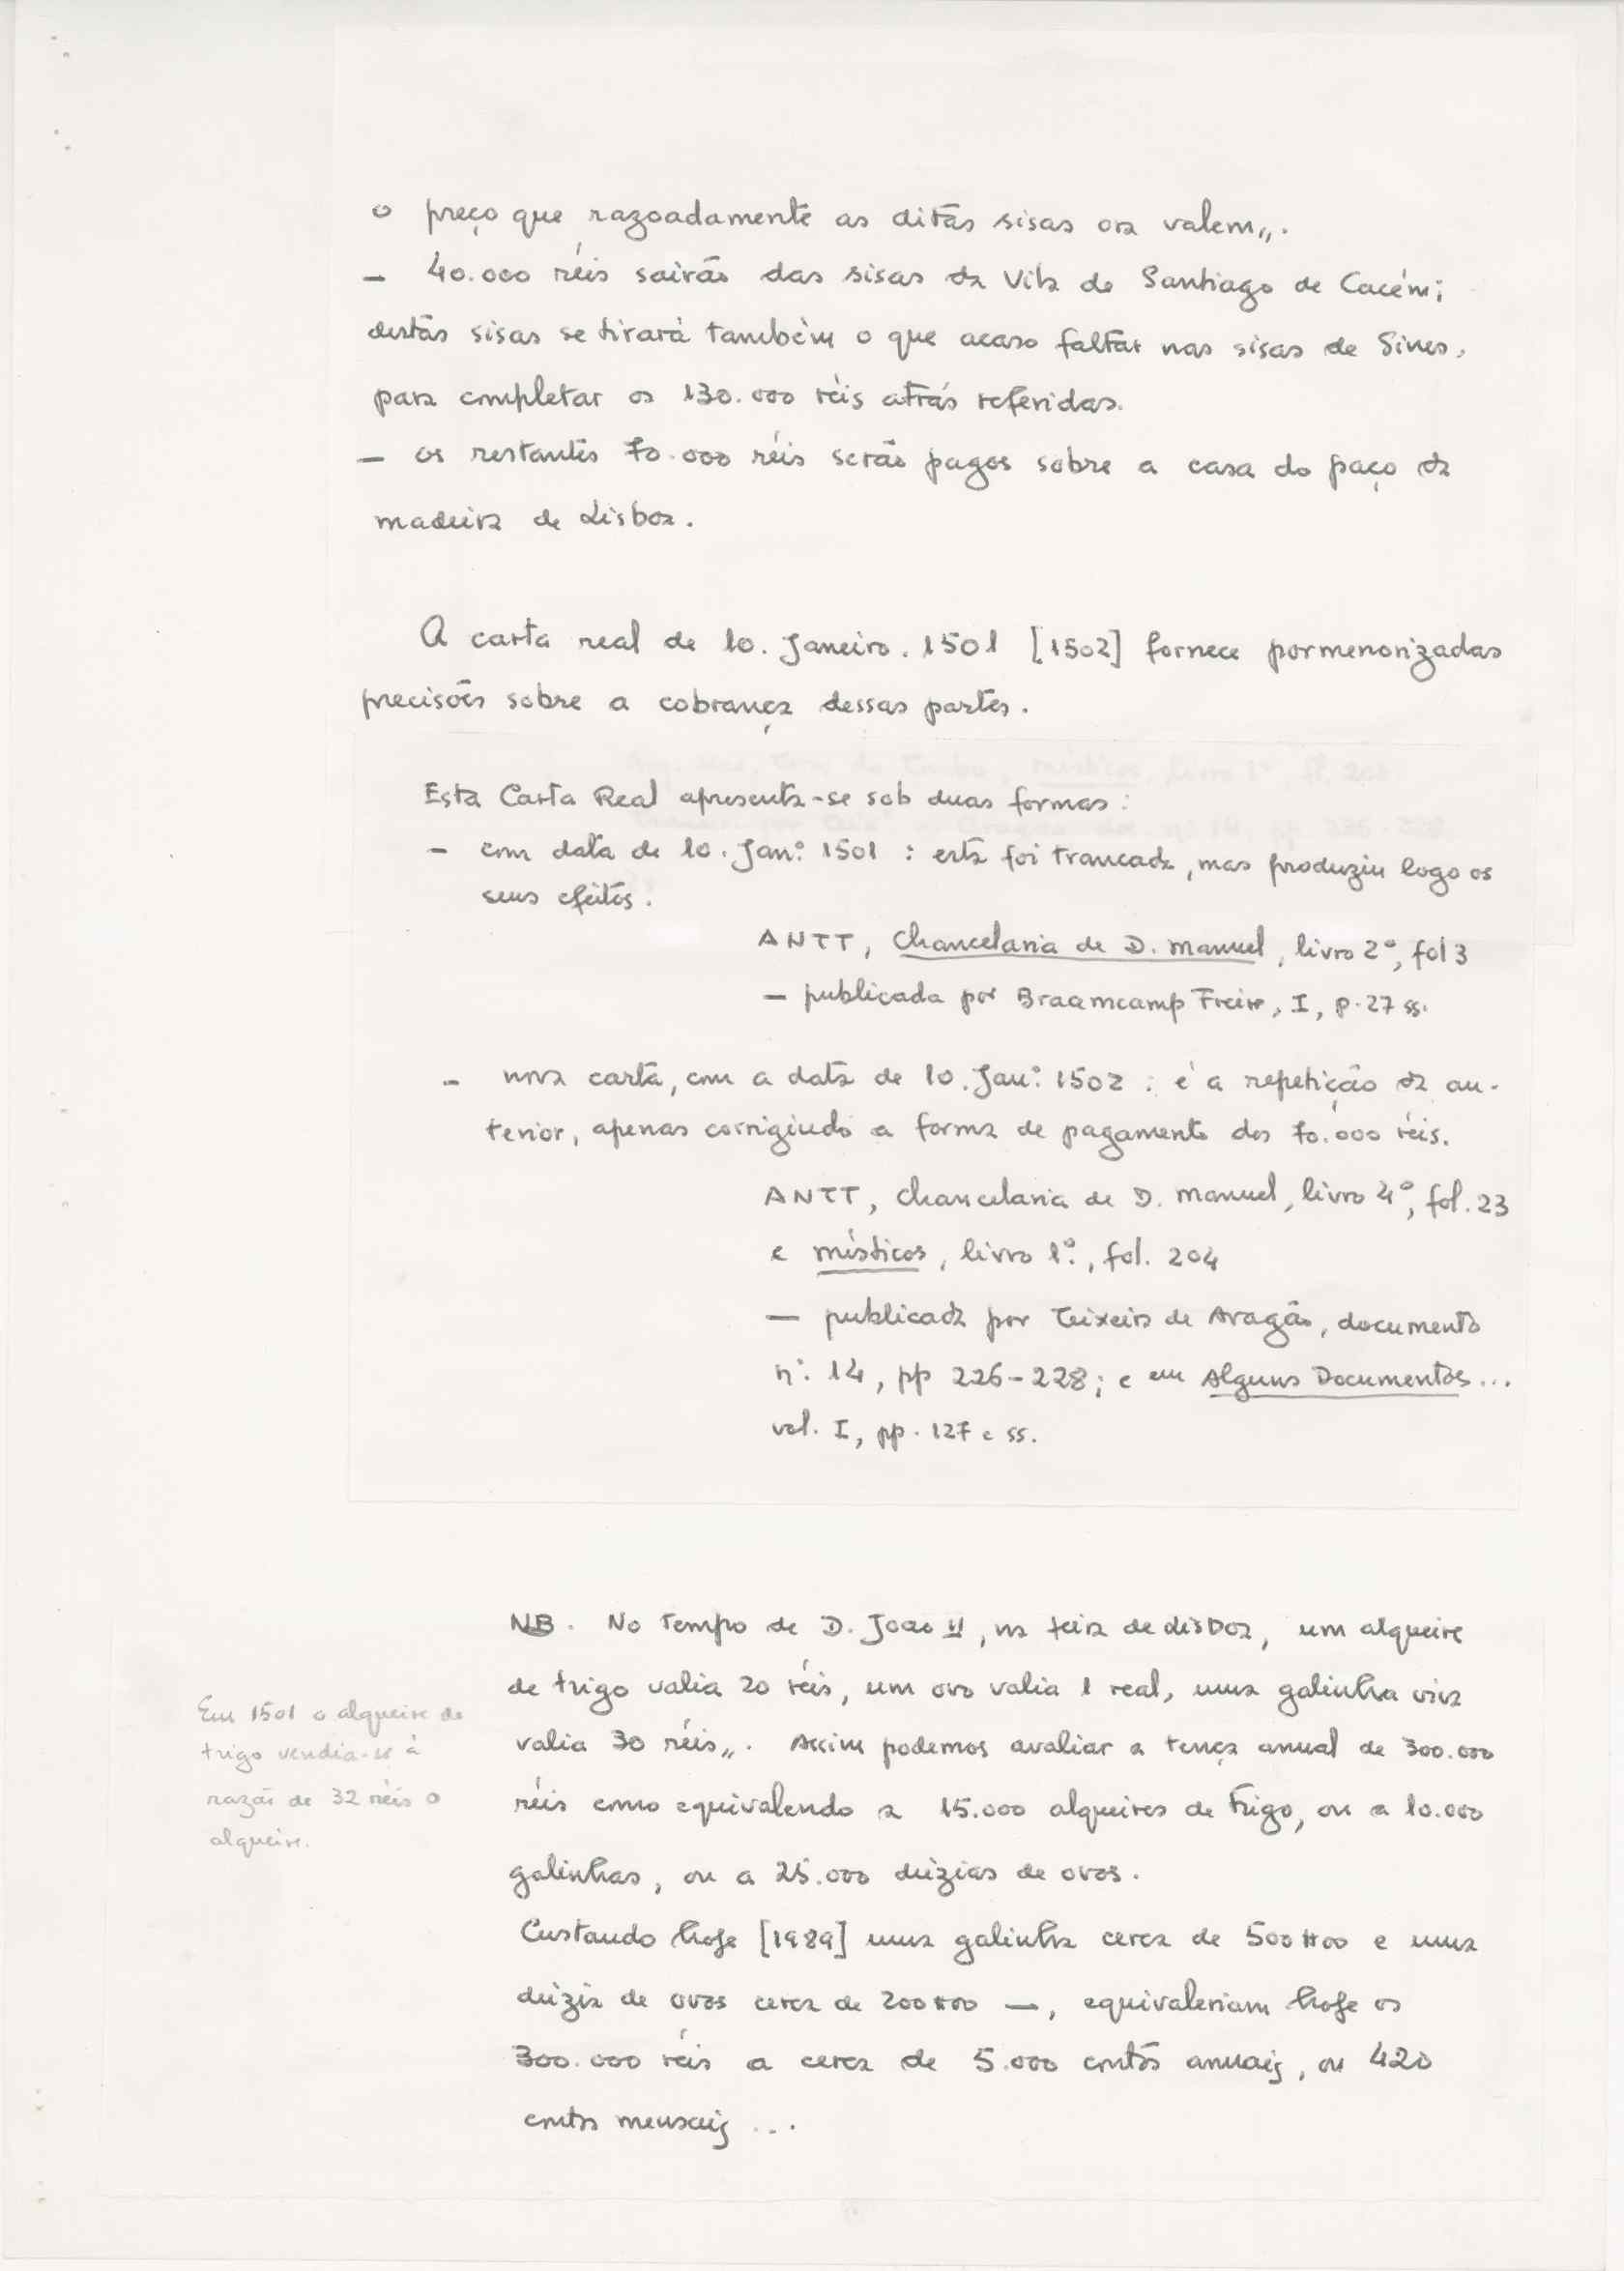 o preço que razoadamente as ditas sisas ora valem„.
— 40.000 réis sairão das sisas da Vila de Santiago de Cacém;
destas sisas se tirará também o que acaso faltar nas sisas de Sines,
para completar os 130.000 réis atrás referidos.
— os restantes 70.000 réis serão pagos sobre a casa do paço da
madeira de Lisboa.
A carta real de 10. Janeiro. 1501 [1502] fornece pormenorizadas
precisões sobre a cobrança dessas partes.
Esta Carta Real apresenta-se sob duas formas:
— com data de 10. Janº. 1501 : esta foi trancada, mas produziu logo os
seus efeitos.
ANTT, Chancelaria de D. Manuel, livro 2º, fol 3
— publicada por Braamcamp Freire, I, p. 27 ss.
— nova carta, com a data de 10. Janº. 1502 : é a repetição da an-
terior, apenas corrigindo a forma de pagamento dos 70.000 réis.
ANTT, Chancelaria de D. Manuel, livro 4º, fol. 23
e místicos, livro 1º., fol. 204
— publicada por Teixeira de Aragão, documento
nº. 14, pp 226-228; e em Alguns Documentos...
vol. I, pp. 127 e ss.
NB. No tempo de D. João II, na feira de Lisboa, um alqueire
de trigo valia 20 réis, um ovo valia 1 real, uma galinha viva
valia 30 réis„. Assim podemos avaliar a tença anual de 300.000
réis como equivalendo a 15.000 alqueires de trigo, ou a 10.000
galinhas, ou a 25.000 dúzias de ovos.
Custando hoje [1989] uma galinha cerca de 500$00 e uma
dúzia de ovos cerca de 200$00 —, equivaleriam hoje os
300.000 réis a cerca de 5.000 contos anuais, ou 420
contos mensais ...
Em 1501 o alqueire de
trigo vendia-se à
razão de 32 réis o
alqueire.